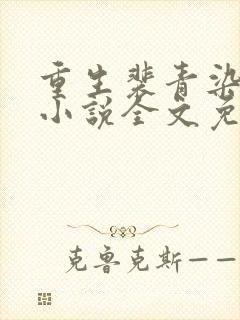 重生裴青染
小说全文免
克鲁克斯——